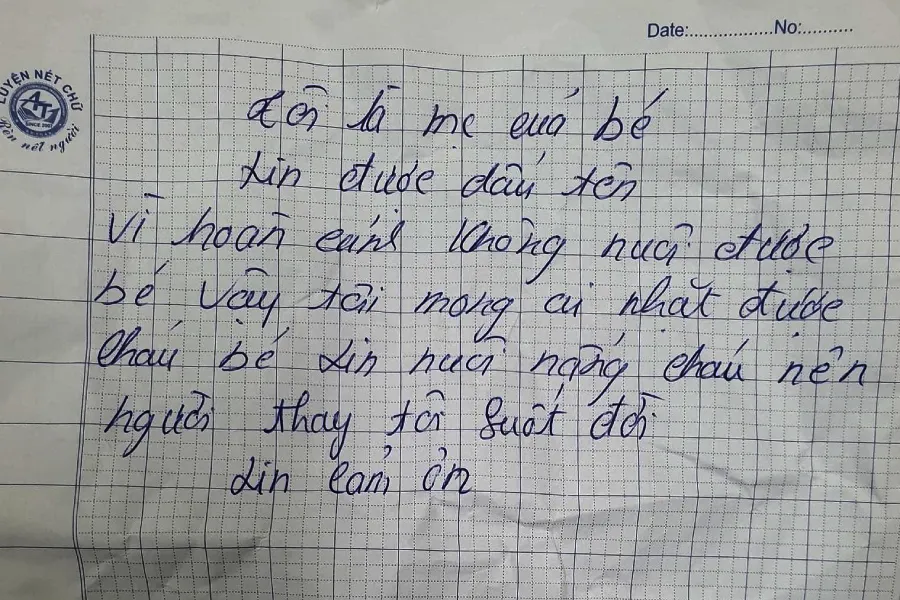 Date:.................No:...........
LUYỆN NÉT CHỮ
AT
SINCE
Rèn nết người
Tôi là mẹ cuả bé
xin được dấu tên
Vì hoàn cảnh không nuôi được
bé vậy tôi mong ai nhặt được
Cháu bé xin nuôi nấng cháu nên
người thay tôi suốt đời
xin cảm ơn